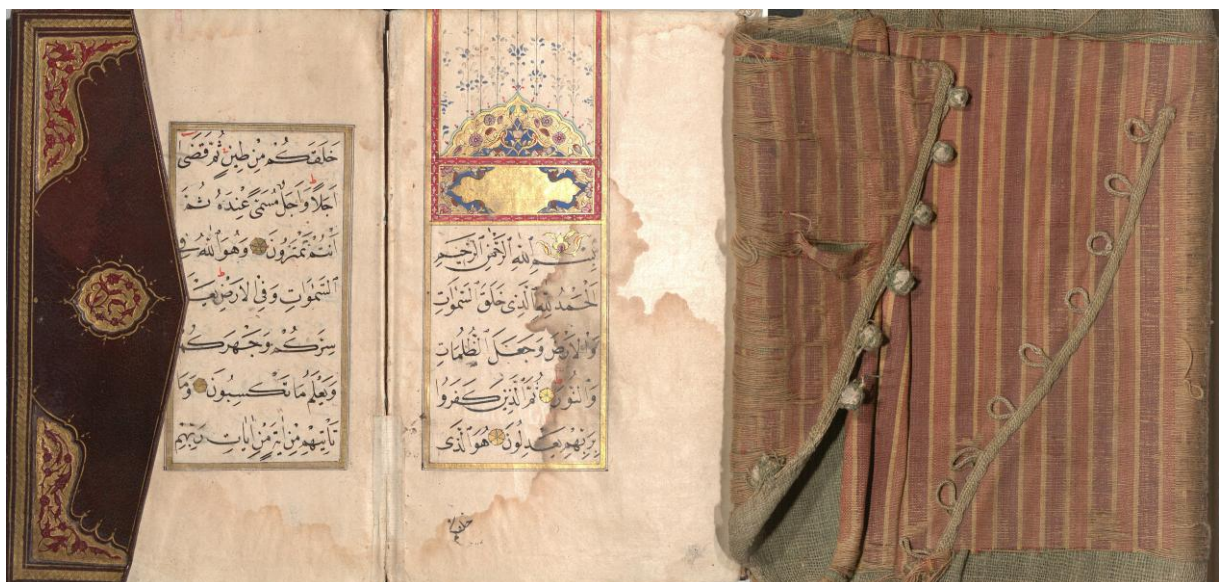 بِسْمِ اللهِ الرَّحْمٰنِ الرَّحِيمِ
اَلْحَمْدُ لِلّٰهِ الَّذِى خَلَقَ السَّمٰوَاتِ
وَالْاَرْضَ وَجَعَلَ الظُّلُمَاتِ
وَالنُّورَ ثُمَّ الَّذِينَ كَفَرُوا
بِرَبِّهِمْ يَعْدِلُونَ هُوَ الَّذِى
خلقكم
خَلَقَكُمْ مِنْ طِينٍ ثُمَّ قَضٰى
اَجَلًا وَاَجَلٌ مُسَمًّى عِنْدَهُ ثُمَّ
اَنْتُمْ تَمْتَرُونَ وَهُوَ اللهُ فِى
السَّمٰوَاتِ وَفِى الْاَرْضِ
سِرَّكُمْ وَجَهْرَكُمْ
وَيَعْلَمُ مَا تَكْسِبُونَ وَمَا
تَأْتِيهِمْ مِنْ اٰيَةٍ مِنْ اٰيَاتِ رَبِّهِمْ